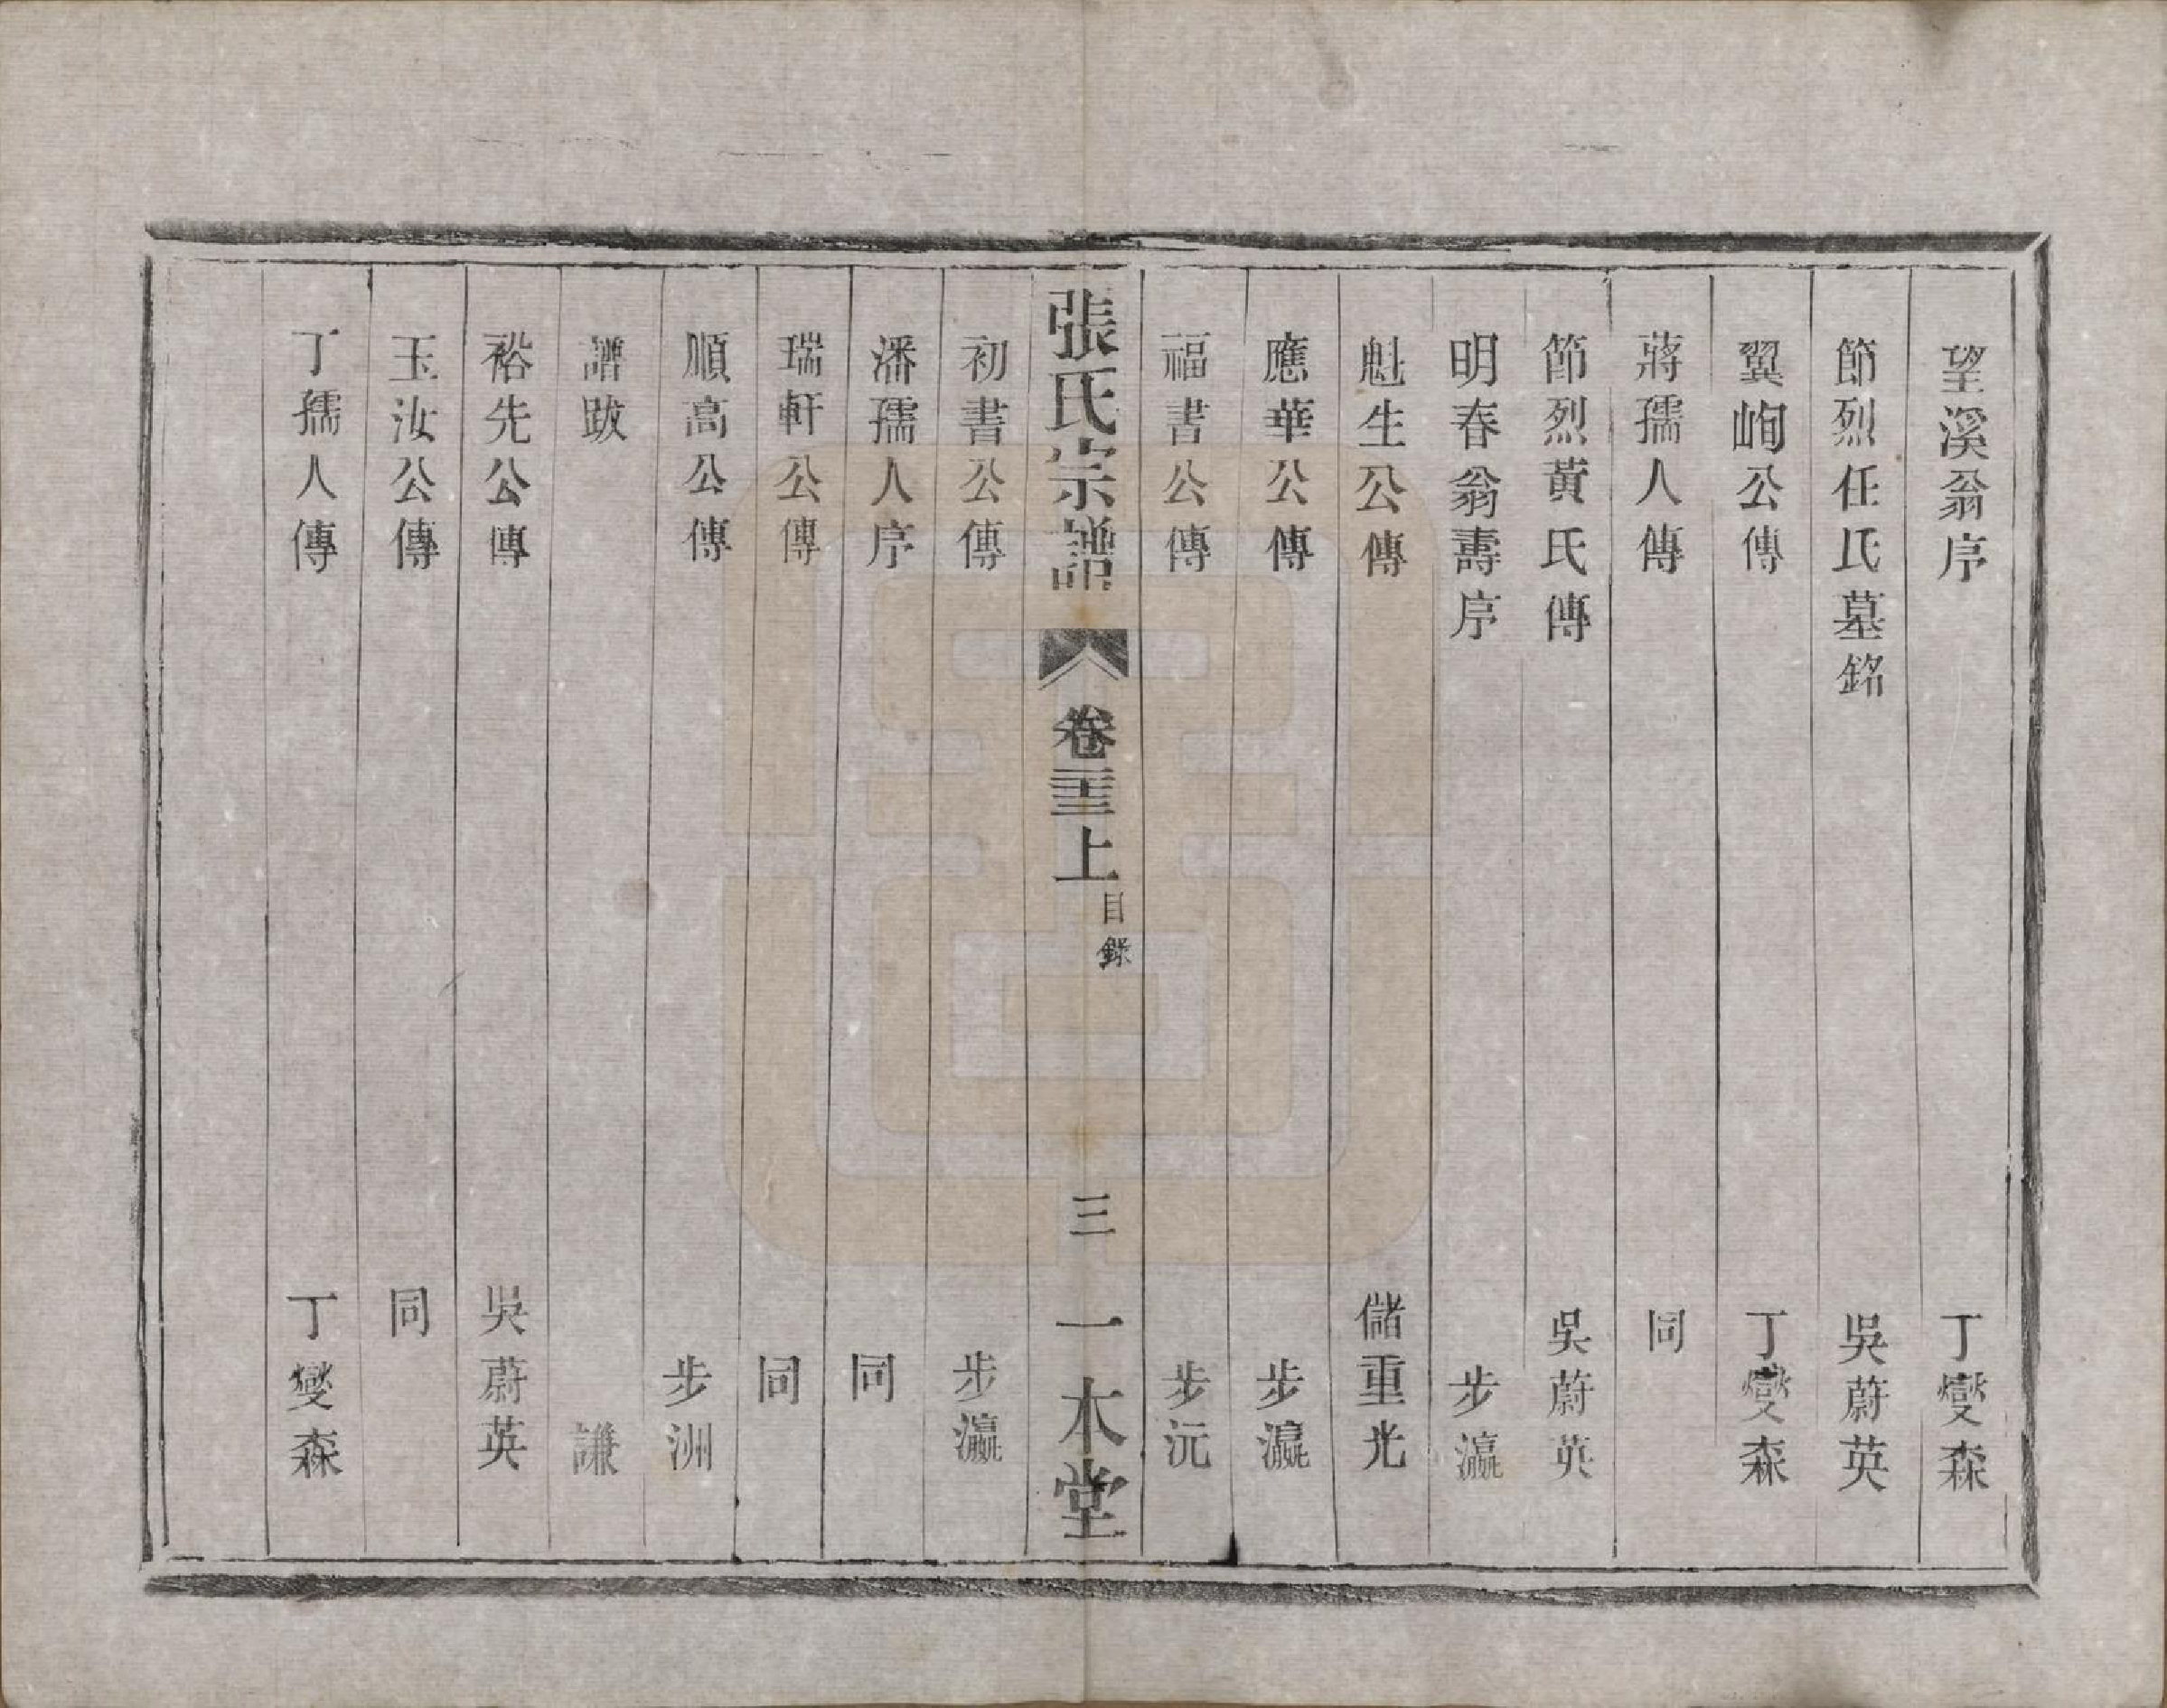 望溪翁序 丁燮森
節烈任氏墓銘 吳蔚英
翼峋公傳 丁燮森
蔣孺人傳 同
節烈黃氏傳 吳蔚英
明春翁壽序 步瀛
魁生公傳 儲重光
應華公傳 步瀛
福書公傳 步沅
張氏宗譜 卷三十三上 目錄 三 一本堂
初書公傳 步瀛
潘孺人序 同
瑞軒公傳 同
順高公傳 步洲
譜跋 謙
裕先公傳 吳蔚英
玉汝公傳 同
丁孺人傳 丁燮森